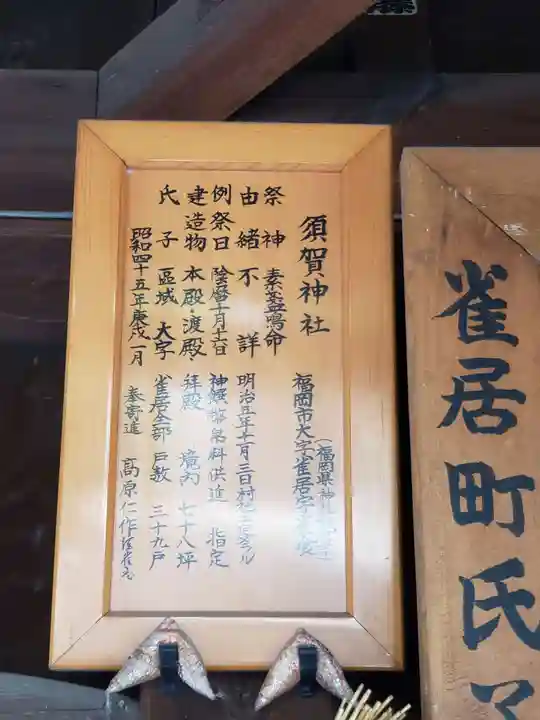 須賀神社
福岡市大字雀居字
(福岡県神
祭神 素盞鳴命
由緒不詳 明治五年十一月三日村社
例祭日 陰暦十月十六日 神饌幣帛料供進 指定
建造物 本殿・渡殿・拝殿 境内 七十八坪
氏子區域 大字雀居全部 戸数 三十九戸
昭和四十五年庚戌一月 奉寄進 高原仁作
雀居町氏